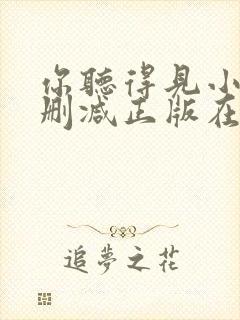 你聽得見小
刪減正版在
追夢之花